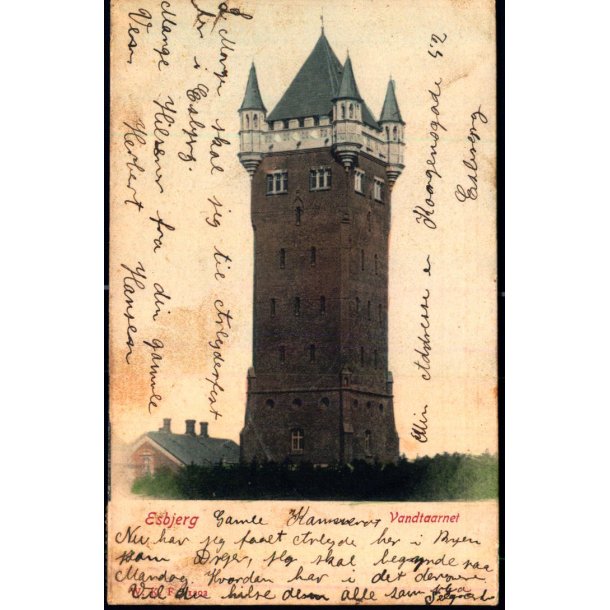 Esbjerg
Vandtaarnet
Gamle Kammerat
Nu har jeg faaet Arbejde her i Byen
som Dreger, jeg skal begynde paa
Mandag. Hvordan har i det derovre
Vil du hilse dem alle sammen fra
I Morgen skal jeg til Arbejderfest
her i Esbjerg.
Mange Hilsner fra din gamle
Ven Herbert Hansen
Min Addresse er Kongensgade 52
Esbjerg